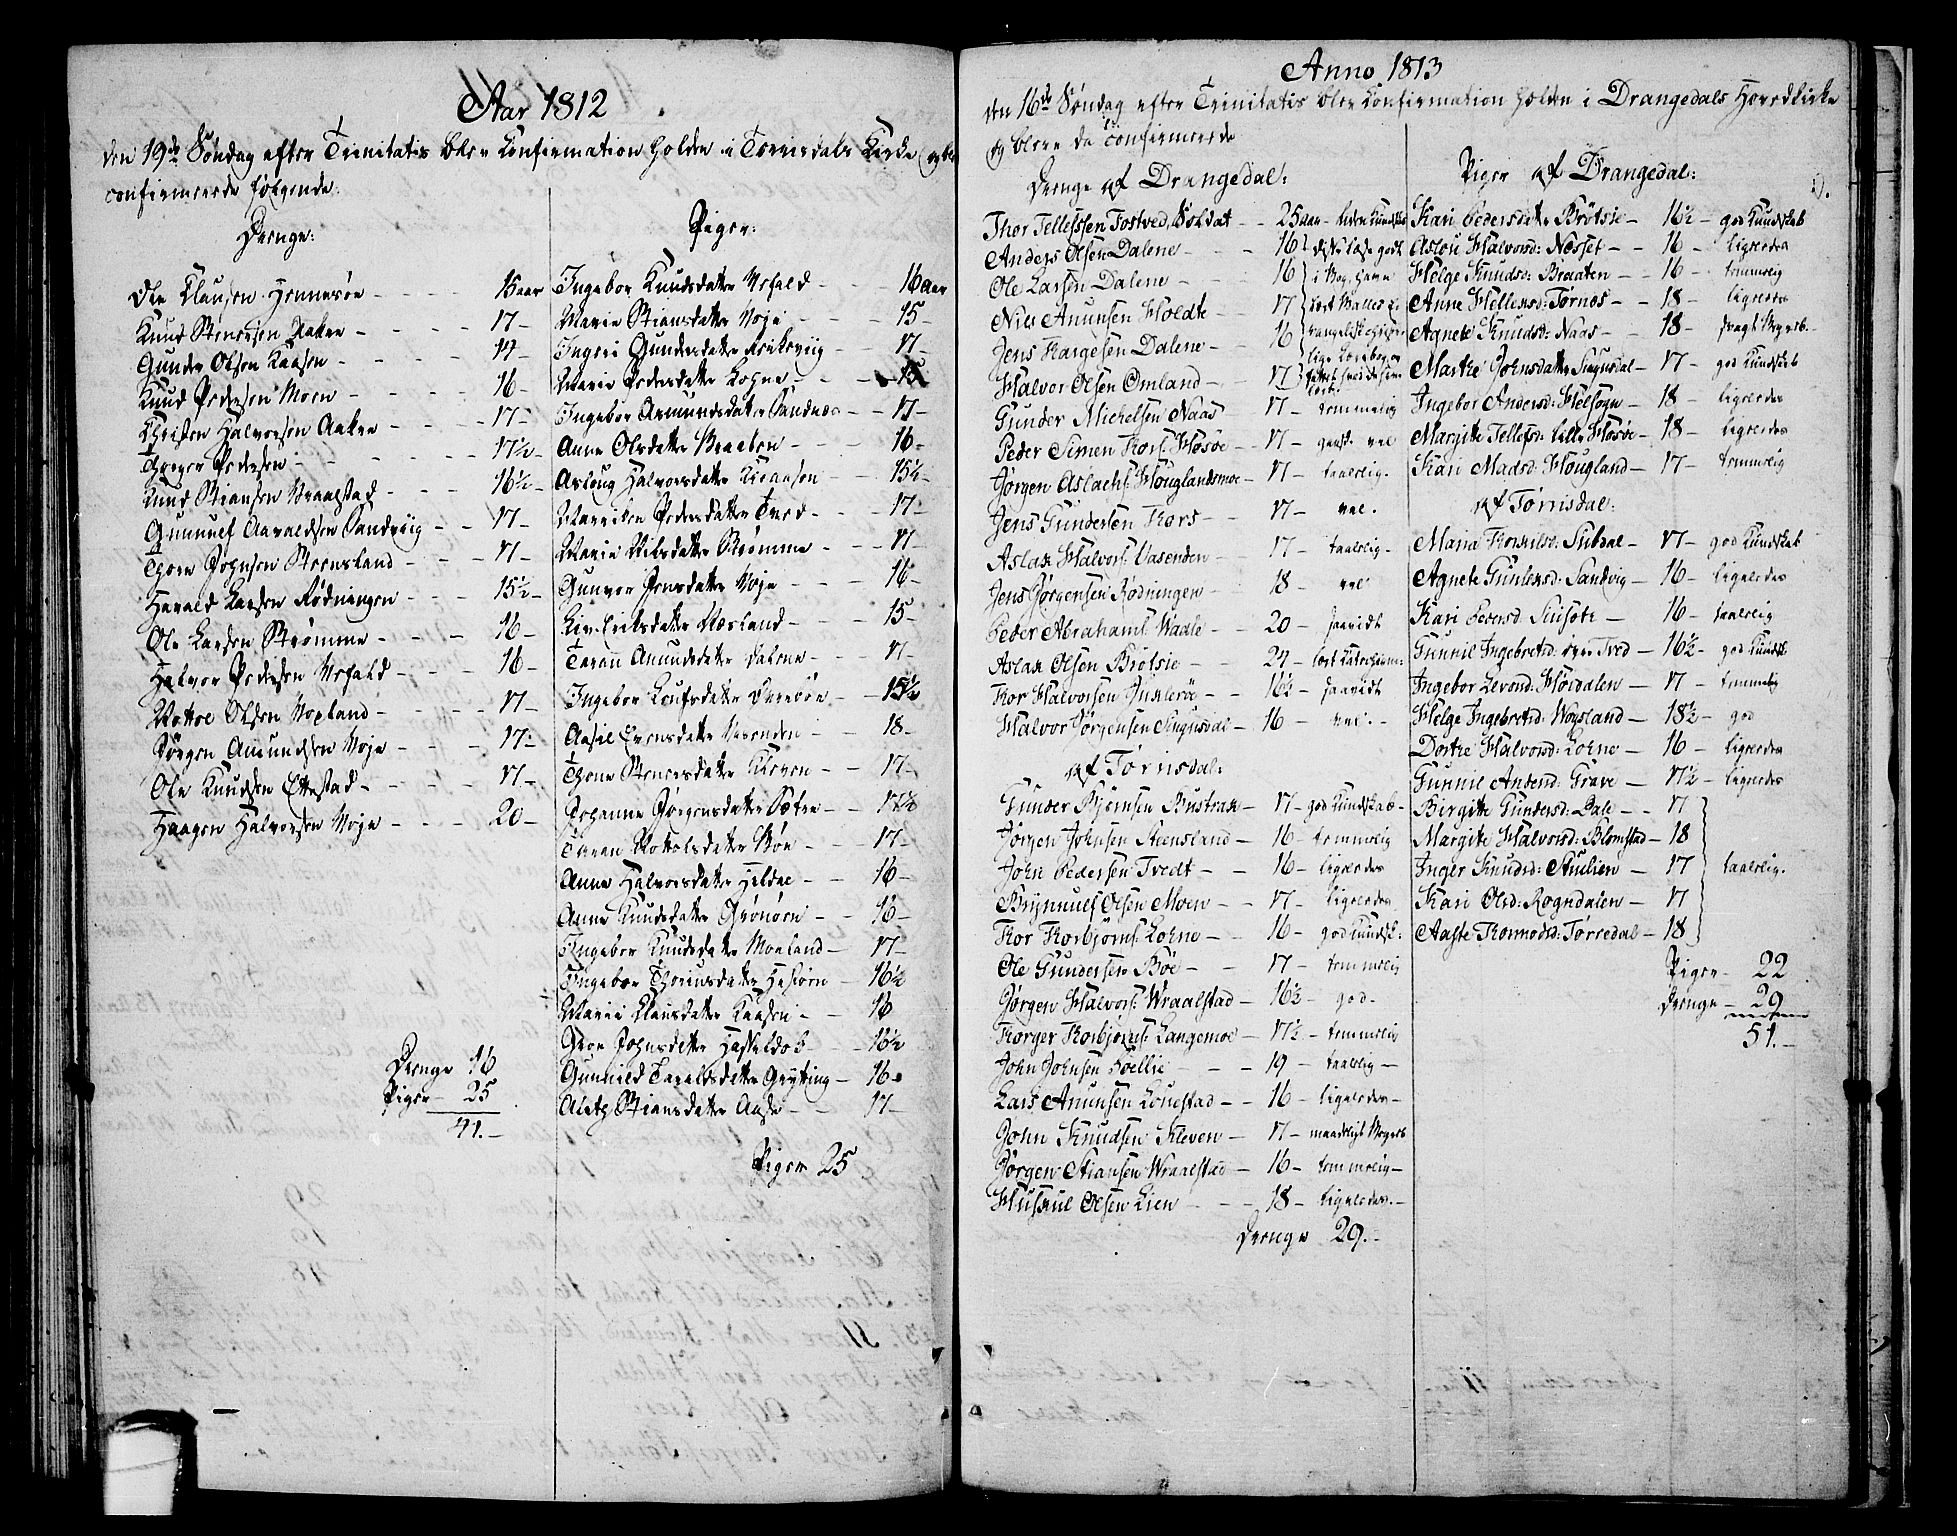 Aar 1812
den 19de Søndag efter Trinitatis blev Confirmation holden i Torrisdals Kirke og ble
confirmerede følgende:
Drenge:
Ole Clausen Hennesøe - 15 aar
Knud Stenersen Aaken - 17
Gunder Olsen Kaasen - 17
Knud Pedersen Moen - 16
Christen Halvorsen Aaken - 17
Greger Pedersen - 17½
Knud Stiansen Wraalstad - 16½
Gunnulf Aaraldsen Sandviig - 17
Thore Johnsen Steensland - 17
Harald Larsen Rødningen - 15½
Ole Larsen Strømme - 16
Halvor Pedersen Wefald - 16
Rottol Olsen Wogsland - 17
Jørgen Amundsen Woje - 17
Ole Knudsen Ettestad - 17
Haagen Halvorsen Woje - 20
Drenge 16
Piger 25
41.
Piger:
Ingebor Knudsdatter Wefald - 16 aar
Marie Stiansdatter Woje - 15
Ingrii Gundersdatter Erikswiig - 17
Marie Pedersdatter Lohne - 15
Ingebor Asmundsdatter Sandnes - 17
Anne Olsdatter Braaten - 16
Asloug Halvorsdatter Kaasen - 15½
Marichen Pedersdatter Tved - 17
Marie Nilsdatter Strømme - 17
Gunvor Jensdatter Woje - 16
Liv Eriksdatter Næsland - 15
Taran Amundsdatter Dalene - 17
Ingebor Leufsdatter - 15½
Aasil Evensdatter Vasenden - 18
Thone Stenersdatter Kleven - 17
Johanne Jørgensdatter Sætre - 17½
Taran Rottolsdatter Bøe - 17
Anne Halvorsdatter Heldae - 16
Anne Knudsdatter Grønøen - 16
Ingebor Knudsdatter Moeland - 17
Ingebor Thorensdatter - 16½
Marie Clausdatter Kaasen - 16
Groe Johnsdatter Haskeldos - 16½
Gunnild Taraldsdatter Gryting - 16
Aletz Stiansdatter Aase - 17
Piger 25
Anno 1813
den 16de Søndag efter Trinitatis blev Confirmation holden i Drangedals Hovedkirke
og bleve da confirmerede
Drenge af Drangedal:
Thor Tellefssen Tostved, Soldat - 25 aar - liden Kundskab
Anders Olsen Dalene - 16 disse læse godt
Ole Larsen Dalene - 16 i Bog, have
Nils Anunsen Holdte - 17
Jens Targesen Dalene - 16
Halvor Olsen Omland - 17
Gunder Michelsen Naas - 17 - temmelig
Peder Simen Torsf: Høsøe - 17 - ganske vel
Jørgen Aslachf: Houglandsmoe - 17 - taalelig.
Jens Gundersen Tors - 17 - vel.
Aslak Halvorf: Vasenden - 17 - taalelig
Jens Jørgensen Rødningen - 18 - vel
Peder Abrahamf: Wadle - 20 - saavidt
Aslak Olsen Brøtsie - 24 - læst Catechism:
Tor Halvorsen Juklerø - 16½ - saavidt
Halvor Jørgensen Singusdal - 16 - vel.
af Tørrisdal:
Gunder Bjørnsen Bustrak - 17 - god Kundskab
Jørgen Johnsen Steensland - 16 - temmelig
John Pedersen Tvedt - 16 - ligeledes
Brynnulf Olsen Moen - 17 - ligeledes
Tor Torbjørnf: Lohne - 16 - god Kundsk:
Ole Gundersen Bøe - 17 - temmelig
Jørgen Halvorf: Wraalstad - 16½ - god
Torger Torbjørnf: Langemoe - 17½ - temmelig
John Johnsen Foellie - 19 - taalelig
Lars Anunsen Lonestad - 16 - ligeledes
John Knudsen Kleven - 17 - maadeligt Begreb
Jørgen Stiansen Wraalstad - 16 - temmelig
Huskul Olsen Lien - 18 - ligeledes.
Drenge 29.
Piger af Drangedal:
Kari Pedersdatter Brøtsie - 16½ - god Kundskab
Aslou Halvorsd: Nesset - 16 - ligeledes
Helge Knudsd: Braaten - 16 - temmelig
Anne Hellensd: Tørnes - 18 - ligeledes
Agnete Knudsd: Naas - 18 - svagt Begreb.
Marthe Johnsdatter Singusdal - 17 - god Kundskab
Ingebor Andersd: Helsogn - 18 - ligeledes
Margitte Tellefsd: Lille Høsøe - 18 - ligeledes
Kari Madsd: Hougland - 17 - temmelig
af Tørrisdal:
Maria Torkilsd: Subsal - 17 - god Kundskab
Agnete Gunlexsd: Sandvig - 16 - ligeledes
Kari Pedersd: - 16 - taalelig
Gunnil Ingebretsd: over Tved - 16½ - god Kundsk:
Ingebor Zevond: Høisdalen - 17 - temmelig
Helge Ingebretsd: Wogsland - 18½ - god
Dorthe Halvorsd: Lohne - 16 - ligeledes
Gunnil Andersd: Grave - 17½ - ligeledes
Birgitte Gundersd: Dale - 17
Margitte Halvorsd: Blomstad - 18
Inger Knudsd: Stulien - 17 taalelig.
Kari Olsd: Rogndalen - 17
Aaste Tormodsd: Tørredal - 18
Piger - 22
Drenge - 29
51.